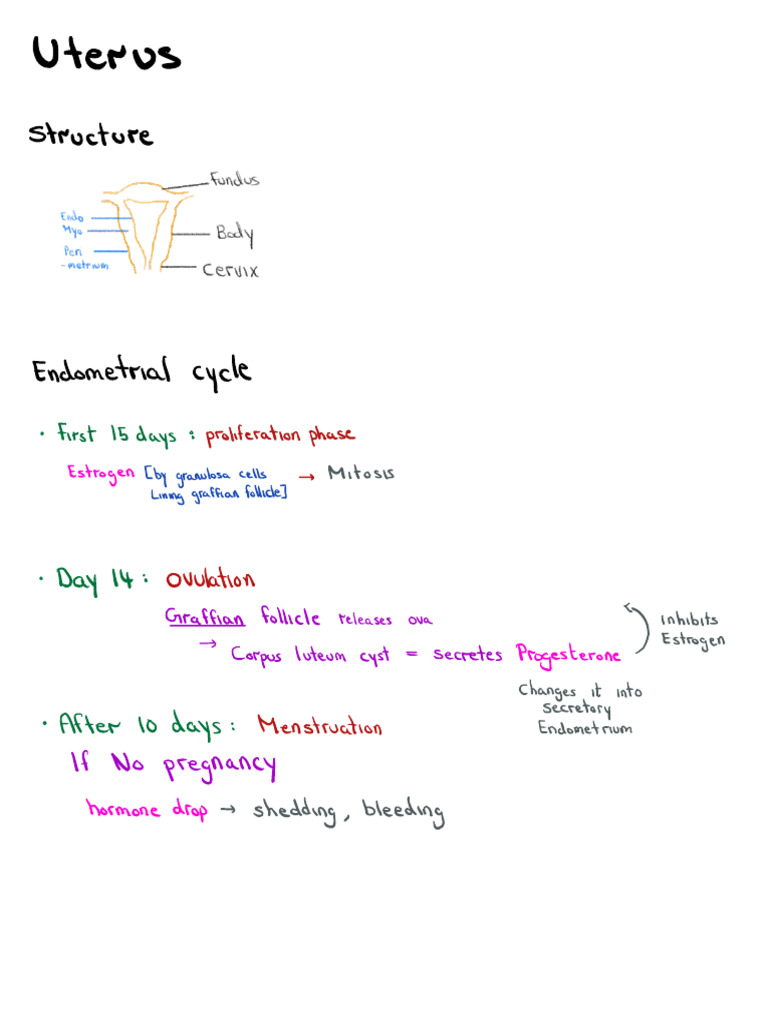 Uterus
Structure
Fundus
Endo
Myo
Body
Peri
-metrium
Cervix
Endometrial cycle
• First 15 days : proliferation phase
Estrogen [by granulosa cells → Mitosis
Lining graffian follicle]
• Day 14 : Ovulation
Graffian follicle releases ova
inhibits
Estrogen
→ Corpus luteum cyst = secretes Progesterone
Changes it into
Secretory
Endometrium
• After 10 days : Menstruation
If No pregnancy
hormone drop → shedding, bleeding